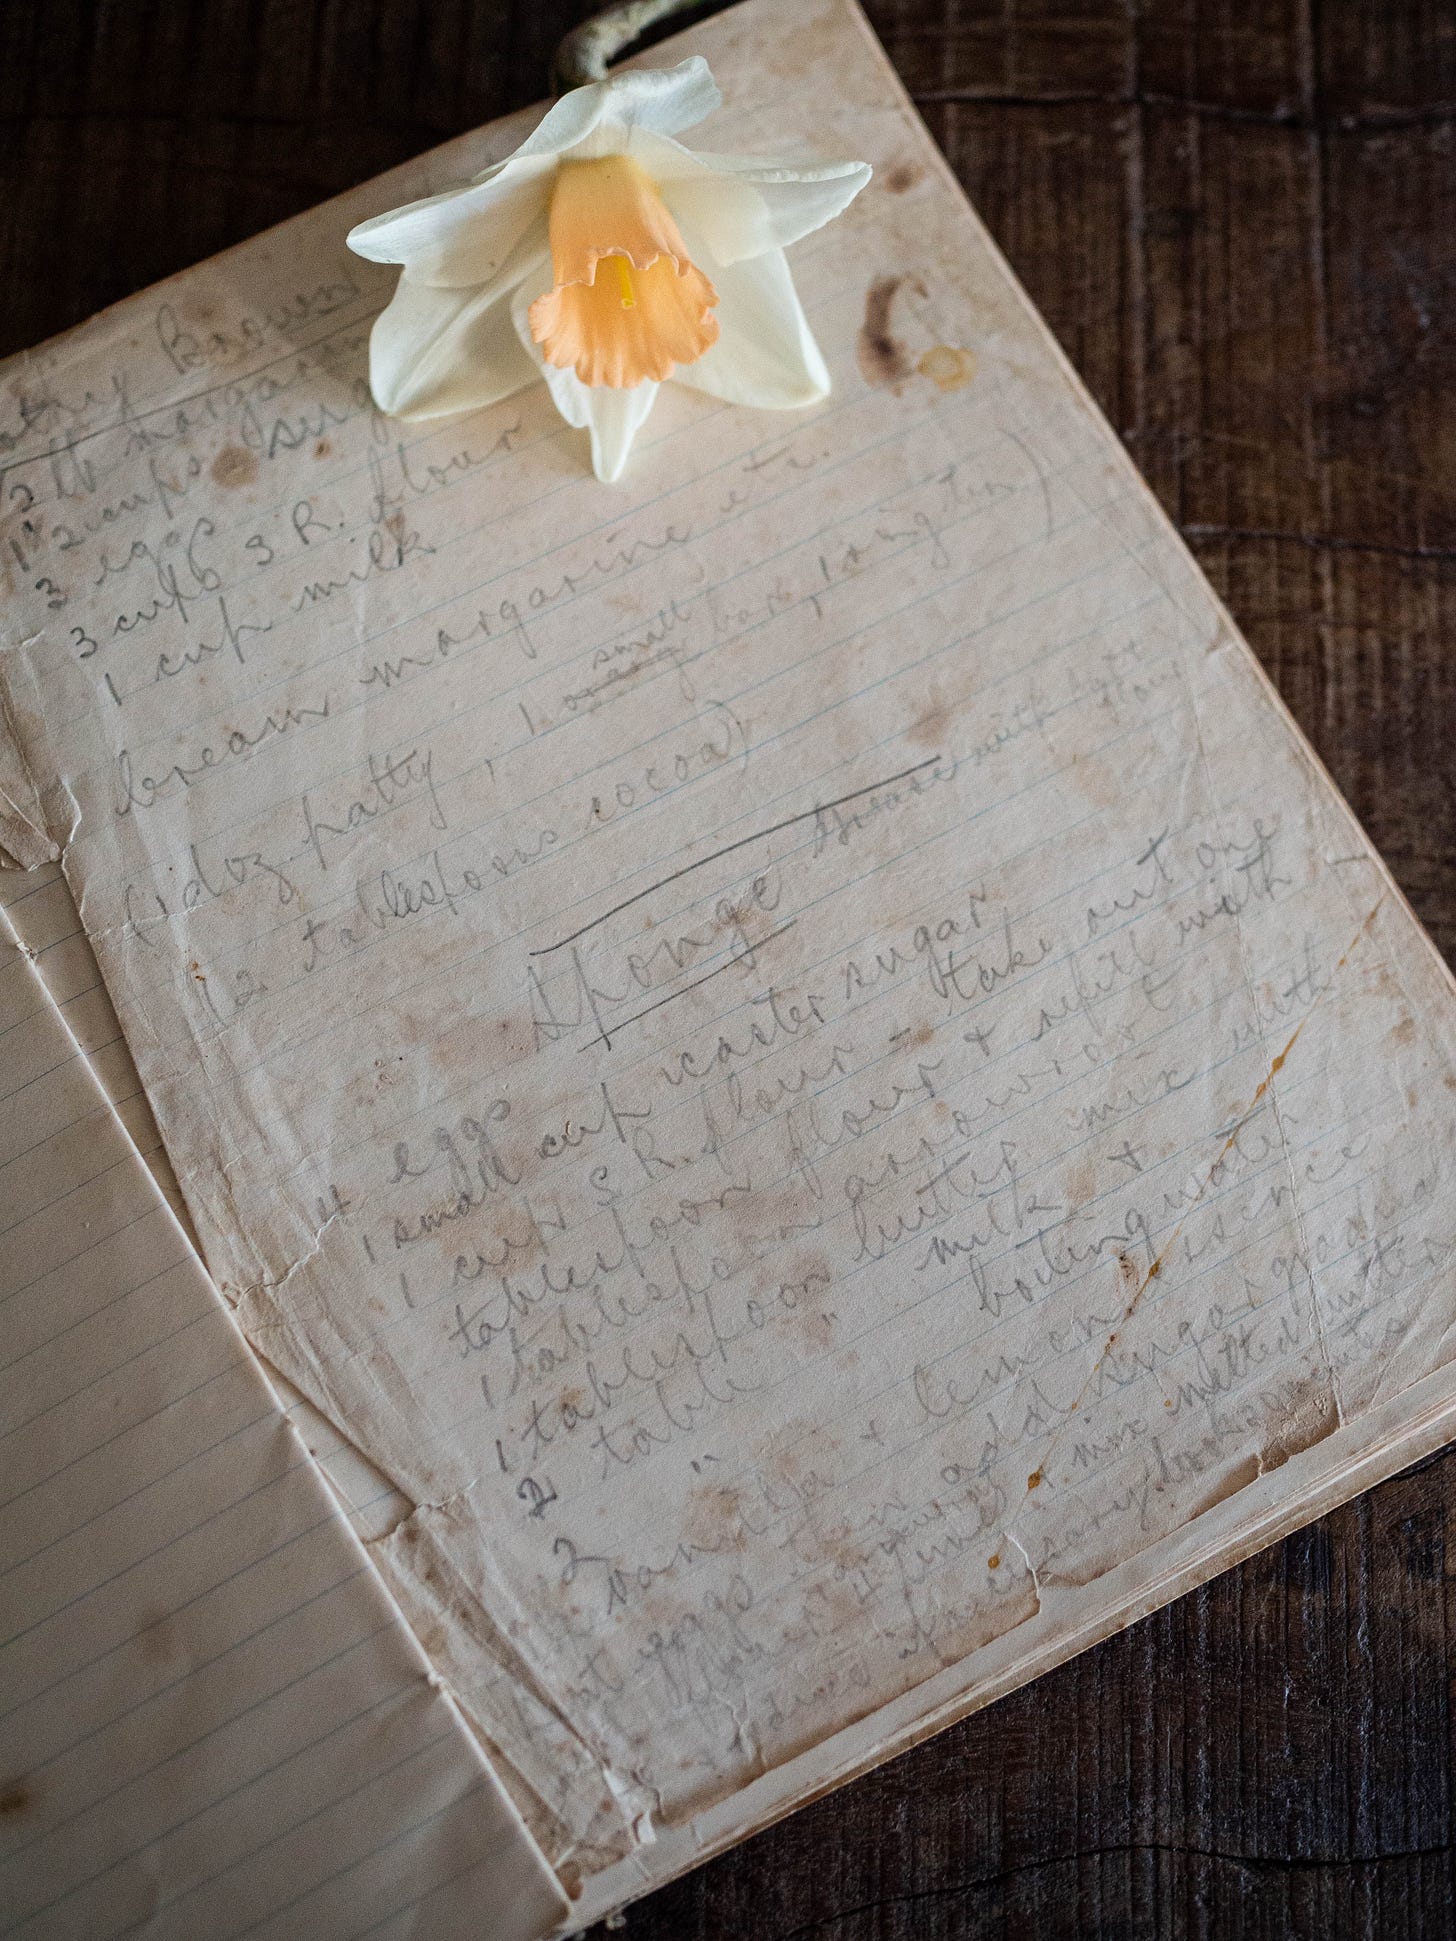 Brown
1/2 lb margarin
1 1/2 cups sug
3 eggs
3 cups S R. flour
1 cup milk
bream margarine etc.
(1 doz patty, 1 small bar, 1 ring tin)
(2 tablespoons cocoa)
Grease with butter
flour
Sponge
4 eggs
1 small cup castor sugar
1 cup S R. flour - take out one
tablespoon flour & refill with
1 tablespoon arrowroot
1 tablespoon butter mix with
2 table " milk &
2 " boiling water
vanilla & lemon essence
Beat eggs then add sugar, gradual
flour & arrowroot & mix melted butter